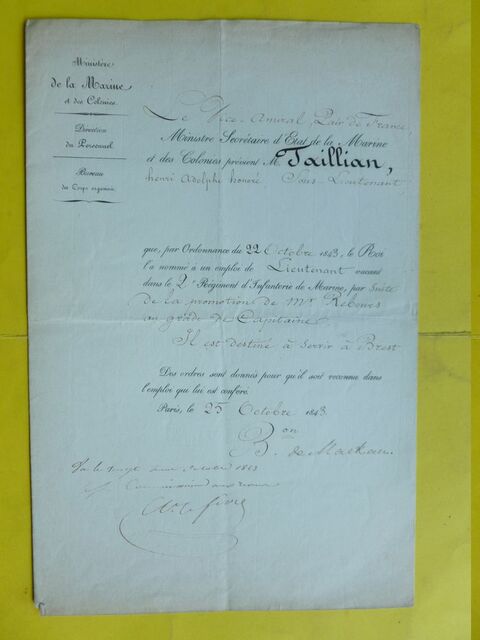 Ministère
de la Marine
et des Colonies.
Direction
du Personnel
Bureau
du Corps organisés
Le Vice-Amiral, Pair de France,
Ministre Secrétaire d'État de la Marine
et des Colonies, prévient M. Taillian,
henri Adolphe honoré Sous-Lieutenant,
que, par Ordonnance du 22 Octobre 1843, le Roi
l'a nommé à un emploi de Lieutenant vacant
dans le 2e Régiment d'Infanterie de Marine, par suite
de la promotion de Mr Rebours
au grade de Capitaine.
Il est destiné à servir à Brest
Des ordres sont donnés pour qu'il soit reconnu dans
l'emploi qui lui est conféré.
Paris, le 25 Octobre 1843
Bon de Mackau
Vu le vingt 1843
Commissaire aux revues